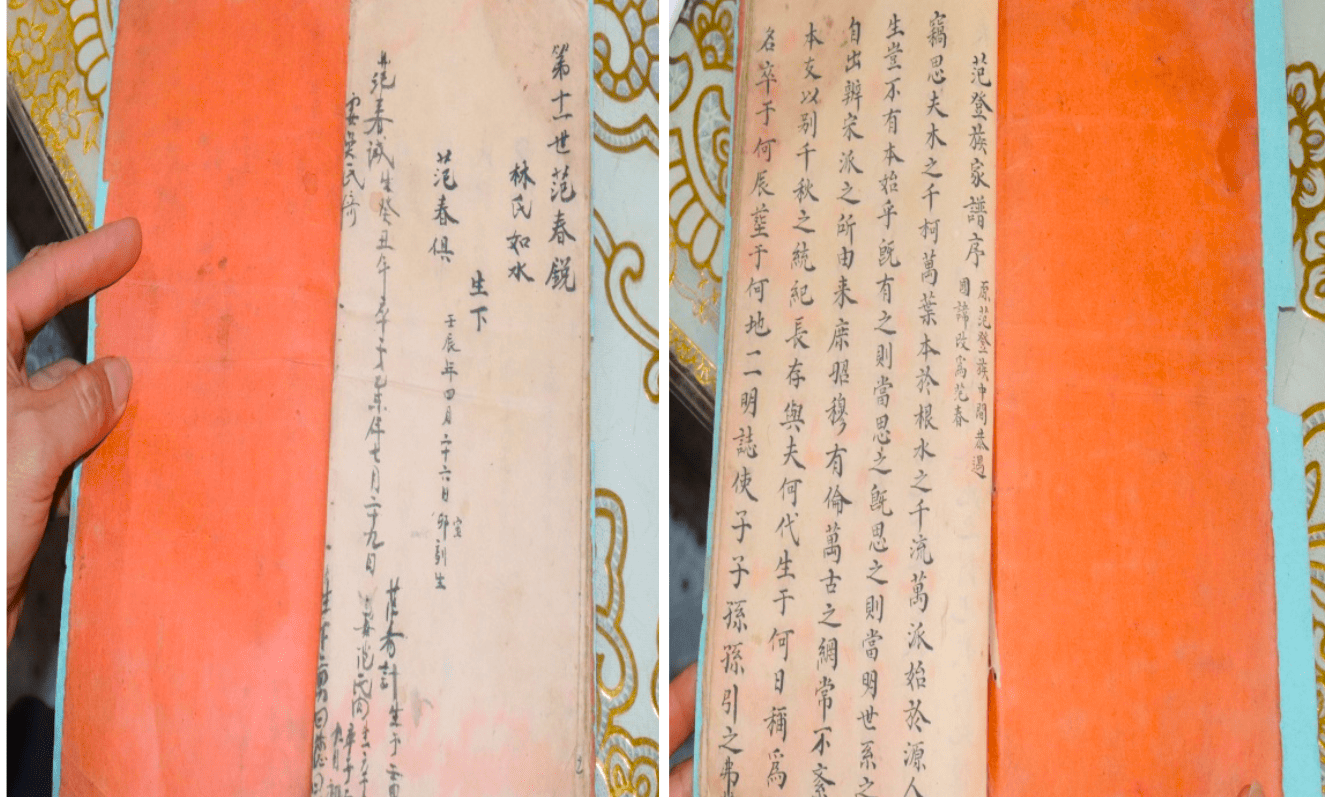 范登族家譜序
原范登族中間恭遇
國諱改爲范春
竊思夫木之千柯萬葉本於根水之千流萬派始於源人
生豈不有本始乎旣有之則當思之旣思之則當明世系之
自出辨宋派之所由来庶昭穆有倫萬古之綱常不紊
本支以别千秋之統紀長存與夫何代生于何日稱爲
名卒于何辰塟于何地二明誌使子子孫孫引之弗
第十一世范春鋭
林氏如水
生下
范春俱
壬辰年四月二十六日
卯刻生
范春誠生癸丑年卒于乙未年七月二十九日
范春計生于
生下
2